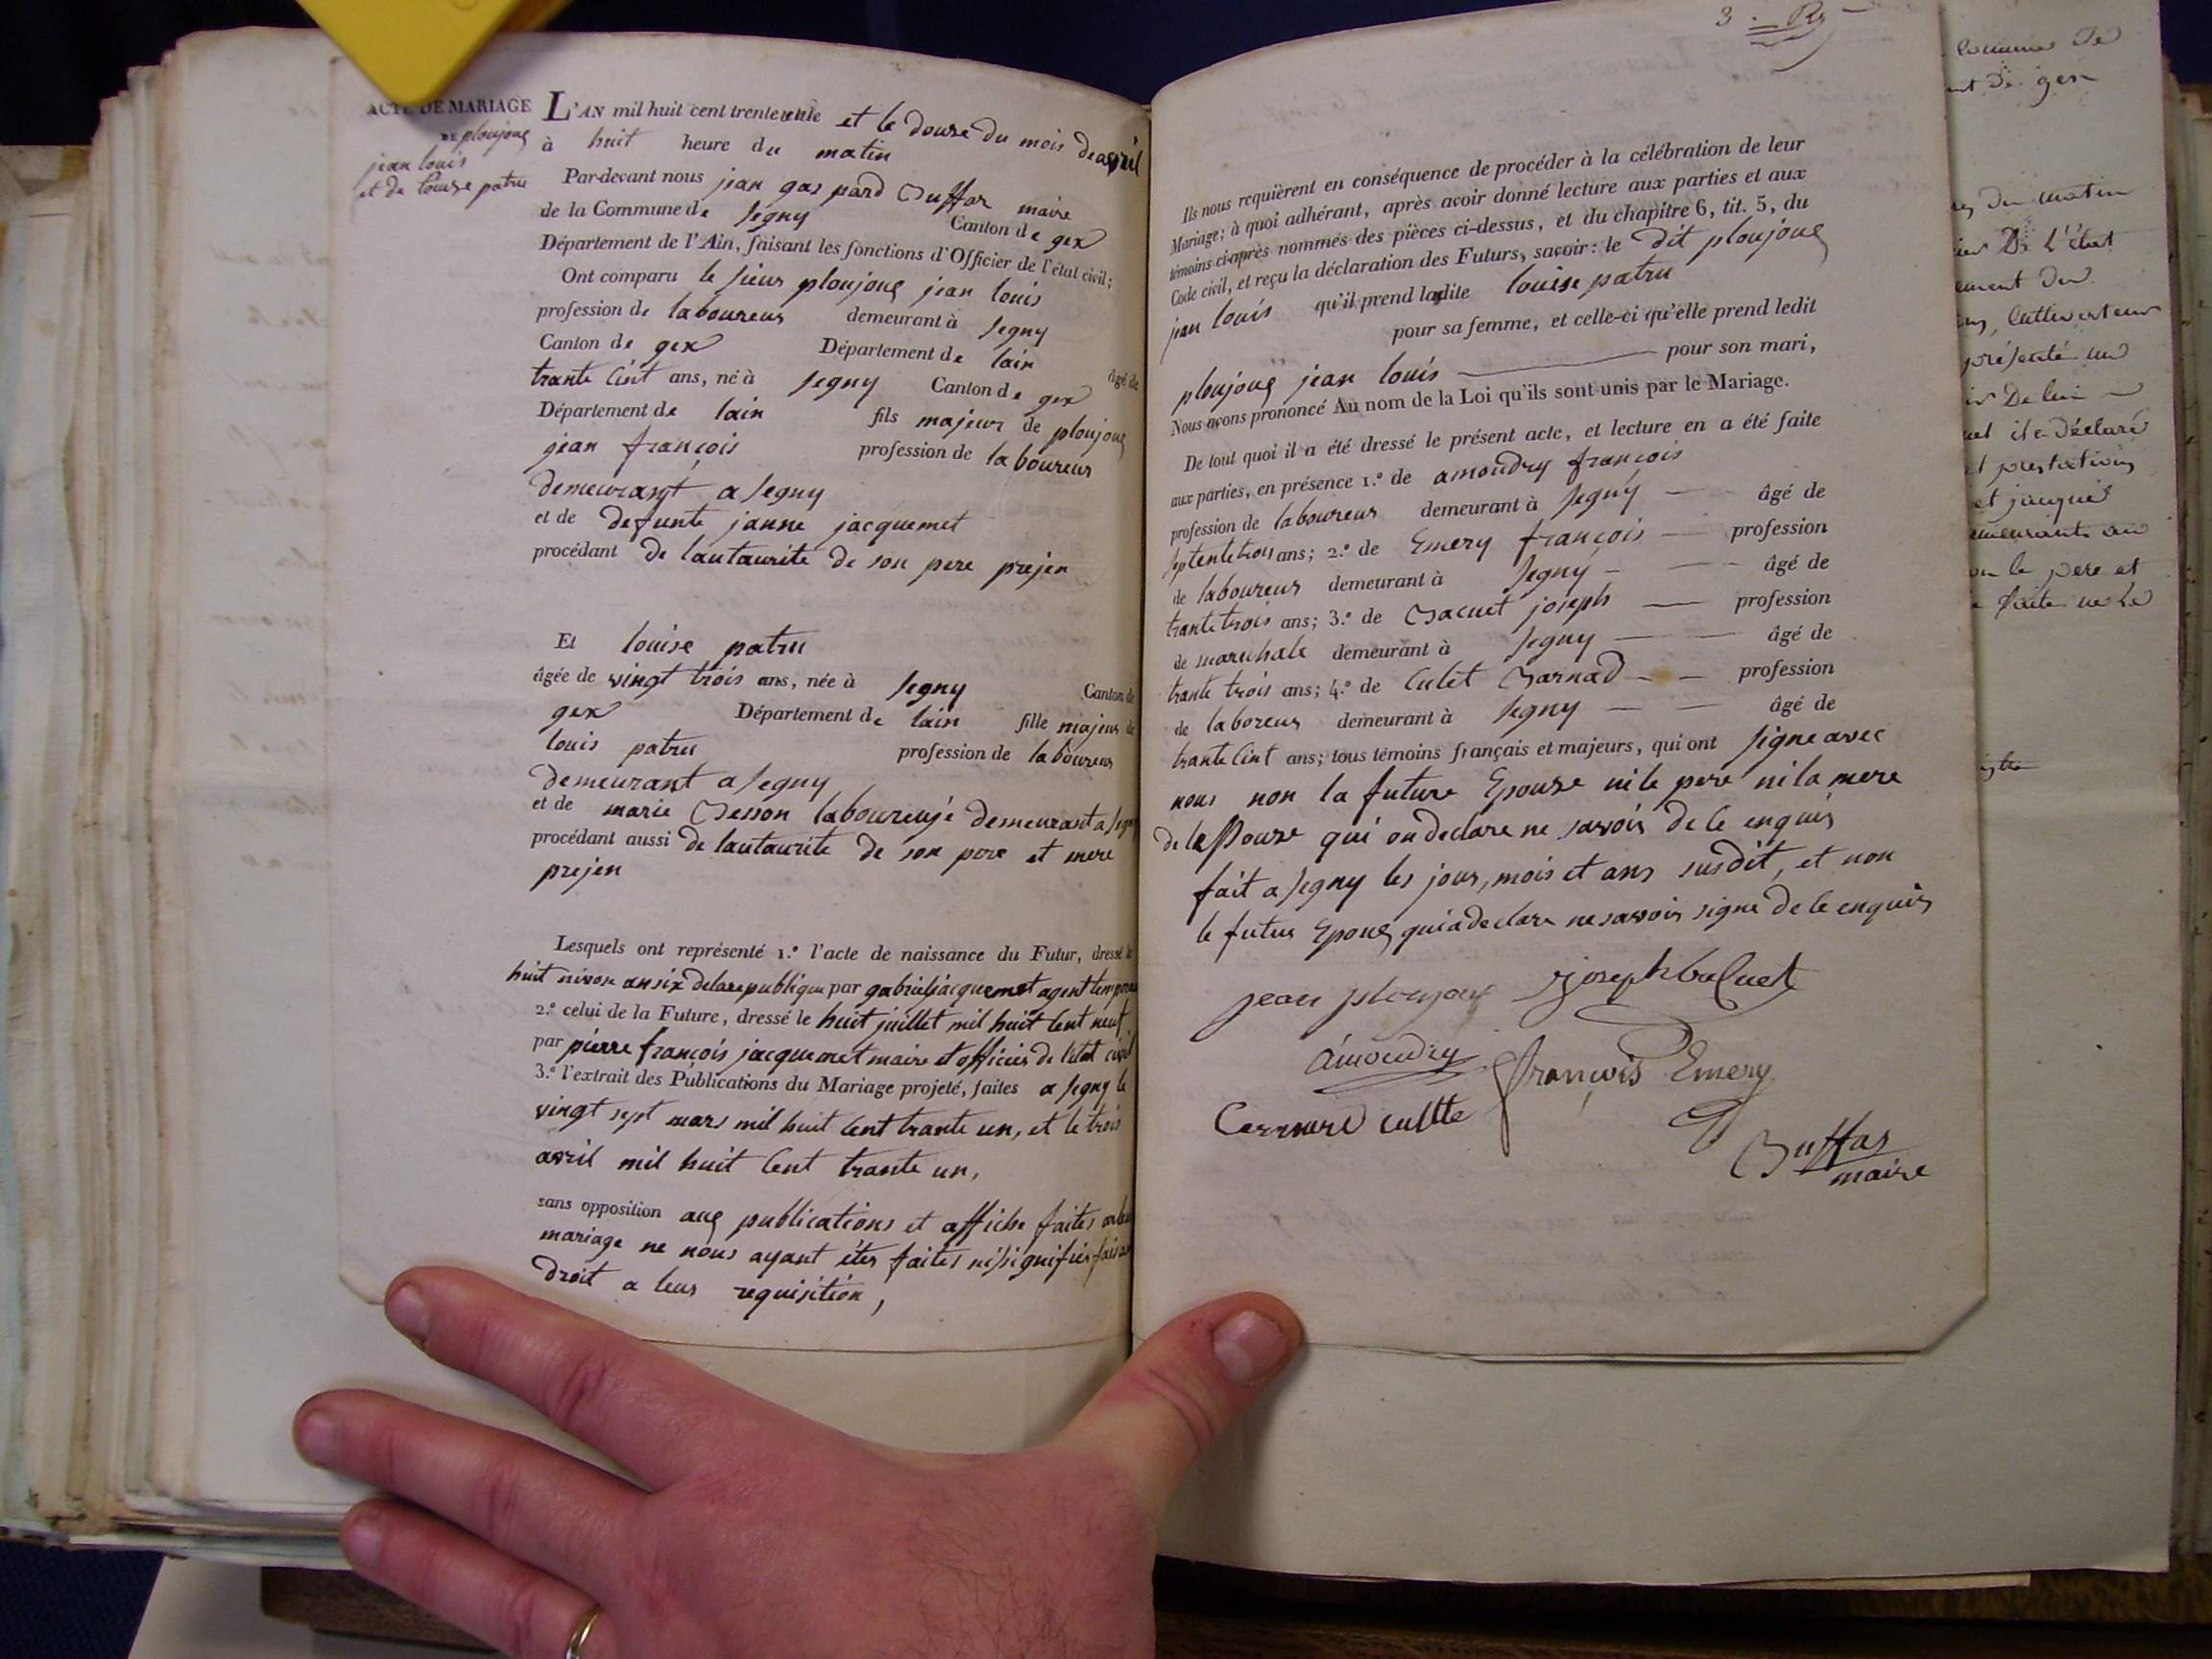 ACTE DE MARIAGE
DE ploujoux
jean louis
et de louise patru
L'AN mil huit cent trente et le douze du mois de avril
à huit heure du matin
Par-devant nous jean gas pard Buffas maire
de la Commune de segny Canton de gex
Département de l'Ain, faisant les fonctions d'Officier de l'état civil;
Ont comparu le sieur ploujoux jean louis
profession de laboureur demeurant à segny
Canton de gex Département de lain âgé de
trante cint ans, né à segny Canton de gex
Département de lain fils majeur de ploujoux
jean françois profession de laboureur
demeurant a segny
et de defunte janne jacquemet
procédant de lautaurite de son pere prejen
Et louise patru
âgée de vingt trois ans, née à segny Canton de
gex Département de lain fille majeur de
louis patru profession de laboureur
demeurant a segny
et de marie Besson laboureuse demeurant a segny
procédant aussi de lautaurite de son pere et mere
prejen
Lesquels ont représenté 1.º l'acte de naissance du Futur, dressé le
huit nivose an six de la republique par gabriel jacquemet agent
2.º celui de la Future, dressé le huit juillet mil huit cent neuf
par pierre françois jacquemet maire et officier de letat civil
3.º l'extrait des Publications du Mariage projeté, faites a segny le
vingt sept mars mil huit cent trante un, et le trois
avril mil huit cent trante un,
sans opposition aux publications et affiche faites
mariage ne nous ayant étés faites ni signifiés
droit a leur requisition,
3
Ils nous requièrent en conséquence de procéder à la célébration de leur
Mariage; à quoi adhérant, après avoir donné lecture aux parties et aux
témoins ci-après nommés des pièces ci-dessus, et du chapitre 6, tit. 5, du
Code civil, et reçu la déclaration des Futurs, savoir: le dit ploujoux
jean louis qu'il prend ladite louise patru
pour sa femme, et celle-ci qu'elle prend ledit
ploujoux jean louis pour son mari,
Nous avons prononcé Au nom de la Loi qu'ils sont unis par le Mariage.
De tout quoi il a été dressé le présent acte, et lecture en a été faite
aux parties, en présence 1.º de amoudry françois
profession de laboureur demeurant à segny âgé de
ans; 2.º de Emery françois profession
de laboureur demeurant à segny âgé de
trante trois ans; 3.º de Bacuet joseph profession
de marichale demeurant à segny âgé de
trante trois ans; 4.º de Culet Barnad profession
de laboreur demeurant à segny âgé de
trante cint ans; tous témoins français et majeurs, qui ont signe avec
nous non la future Epouse ni le pere ni la mere
de qui on declare ne savoir de ce enquis
fait a segny les jour, mois et ans susdit, et non
le futur Epoux qui a declare ne savoir signe de ce enquis
jean ploujoux joseph baCuet
amoudry françois Emery
Bernard cullte
Buffas
maire
Commune De
de gex
du matin
De l'état
Cultivateur
présenté un
De lui
il a déclaré
et jacques
demeurants au
le pere et
faite ne le